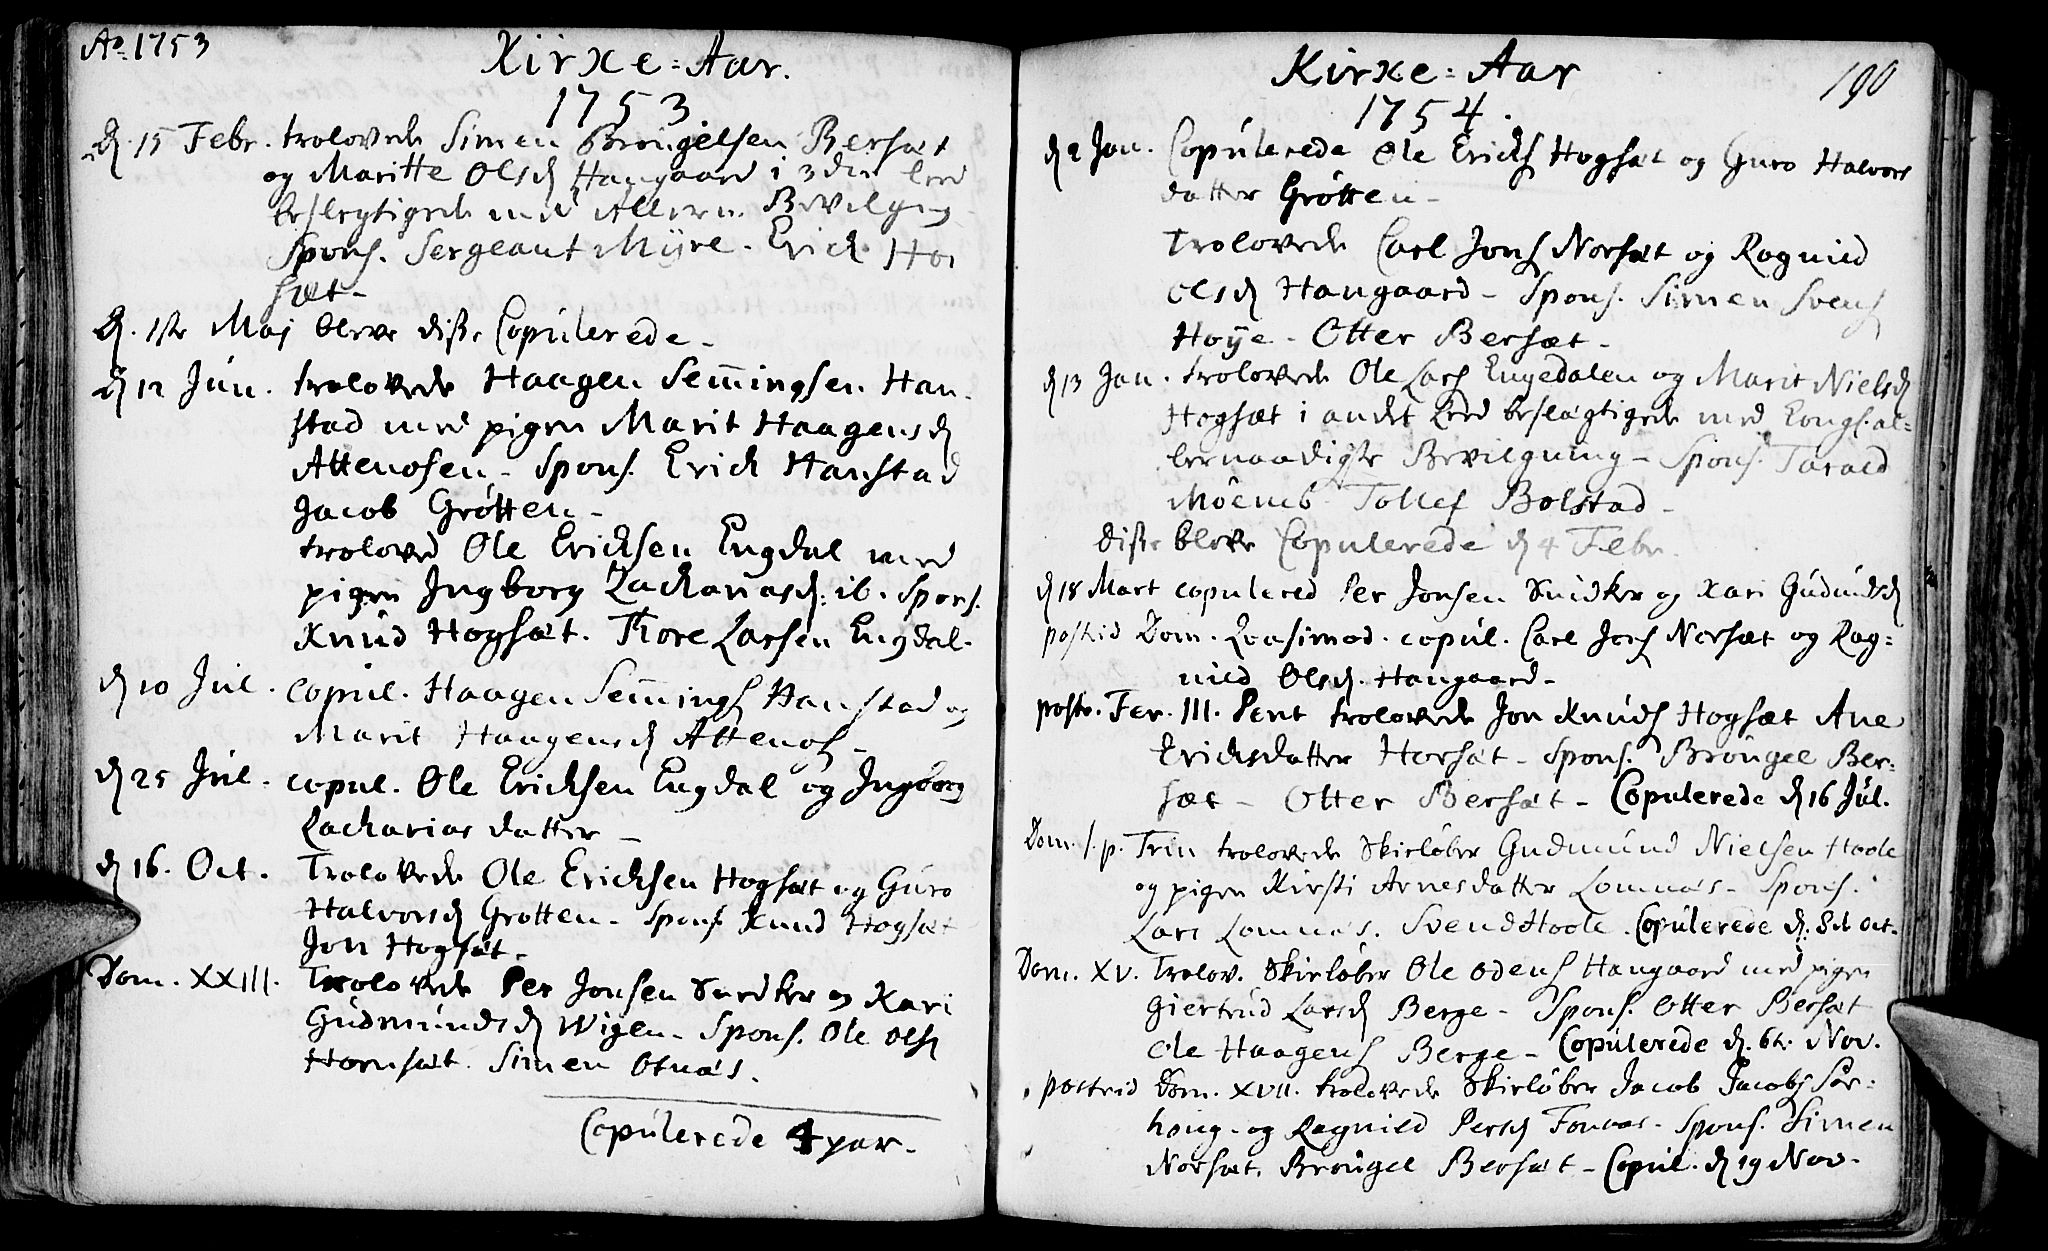 Ao 1753
Kirke=Aar.
1753
d. 15 Febr. trolovede Simen Brøngelsen Bersæt
og Maritte Olsd Haugaard i 3die leed
beslegtigede med Allern. Bevilgning
Spons. Sergeant Myre. Erick Hor
sæt-
D. 1ste Maj bleve disse Copulerede-
d 12 Jun. trolovede Haagen Semingsen Han
stad med pigen Marit Haagensd
Attenosen- Spons. Erick Hanstad
Jacob Grøtten-
troloved Ole Ericksen Engdal med
pigen Ingborg Zachariasd: ib. Spons.
Knud Hogsæt. Thore Larsen Engdal.
d 10 Jul. copul. Haagen Semings Hanstad og
Marit Haagensd Attenos-
d 25 Jul. copul. Ole Ericksen Engdal og Ingborg
Zacharias datter-
d 16. Oct. Trolovede Ole Ericksen Hogsæt og Guro
Halvorsd Grøtten- Spons Knud Hogsæt
Jon Hogsæt-
Dom. XXIII. Trolovede Per Jonsen Snedker og Kari
Gudmundsd Wigen- Spons. Ole Ols
Hornsæt. Simen Otnæs.
Copulerede 4 par.
Kirke=Aar
190
1754.
d 2 Jan. Copulerede Ole Ericks Hogsæt og Guro Halvors
datter Grøtten-
Trolovede Carl Jons Norsæt og Ragnild
Olsd Haugaard- Spons. Simen Svens
Høye- Otter Bersæt-
d 13 Jan. trolovede Ole Lars Engedalen og Marit Nielsd
Hogsæt i andet leed beslægtigede med Kongs. al=
lernaadigste Bevilgning- Spons. Tarald
Møemb- Tollef Bolstad-
disse bleve Copulerede d 4 Febr.
d 18 Mart copulered Per Jonsen Snidker og Kari Gudmundsd
postrid Dom. Qvasimod. copul. Carl Jons Norsæt og Rag=
nild Olsd. Haugaard-
postr. Fer. III. Pent trolovede Jon Knuds Hogsæt Ane
Ericksdatter Horsæt- Spons. Brøngel Ber=
sæt- Otter Bersæt- Copulerede d 16 Jul.
Dom. 1. p. Trin trolovede Skieløber Gudmund Nielsen Hoole
og pigen Kirsti Arnesdatter Lomnæs- Spons.
Lars Lomnæs. Svend Hoole. Copulerede d. 8de Oct.
Dom. XV. Trolov. Skieløber Ole Odens Haugaard med pigen
Giertrud Larsd Berge- Spons. Otter Bersæt
Ole Haagens Berge- Copulerede d. 6te Nov.
postrid Dom. XVII. trolovede Skieløber Jacob Jacobs Sør=
houg- og Ragnild Persd Fonæs- Spons. Simen
Norsæt. Brøngel Bersæt- Copul. d 19 Nov.